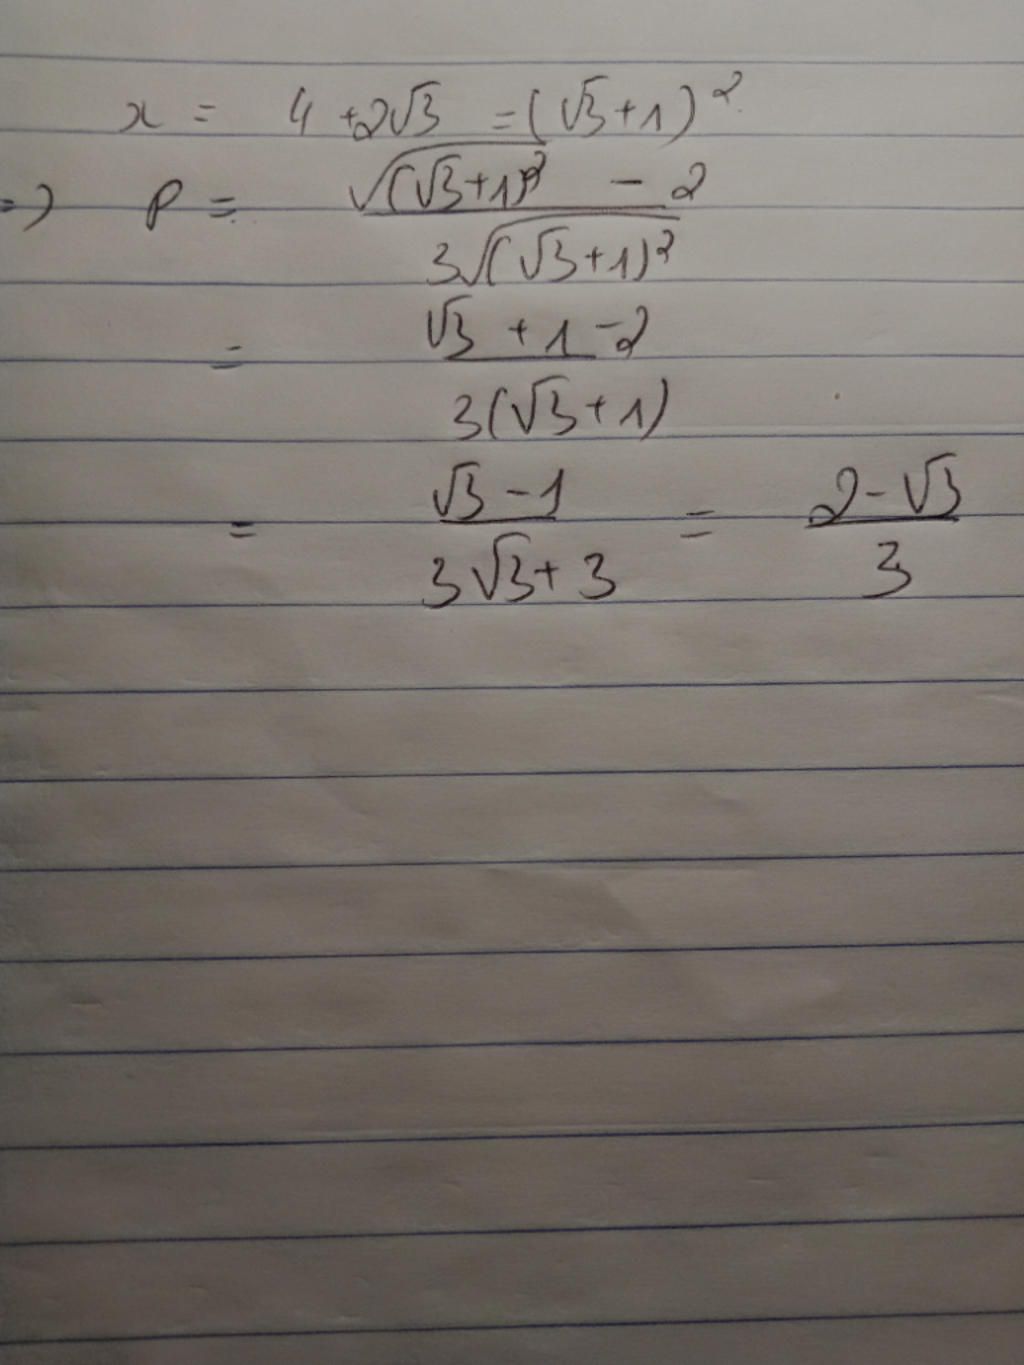 x = 4 + 2√3 = (√3 + 1)²
=> P = (√((√3 + 1)²) - 2) / (3√((√3 + 1)²))
= (√3 + 1 - 2) / (3(√3 + 1))
= (√3 - 1) / (3√3 + 3) = (2 - √3) / 3